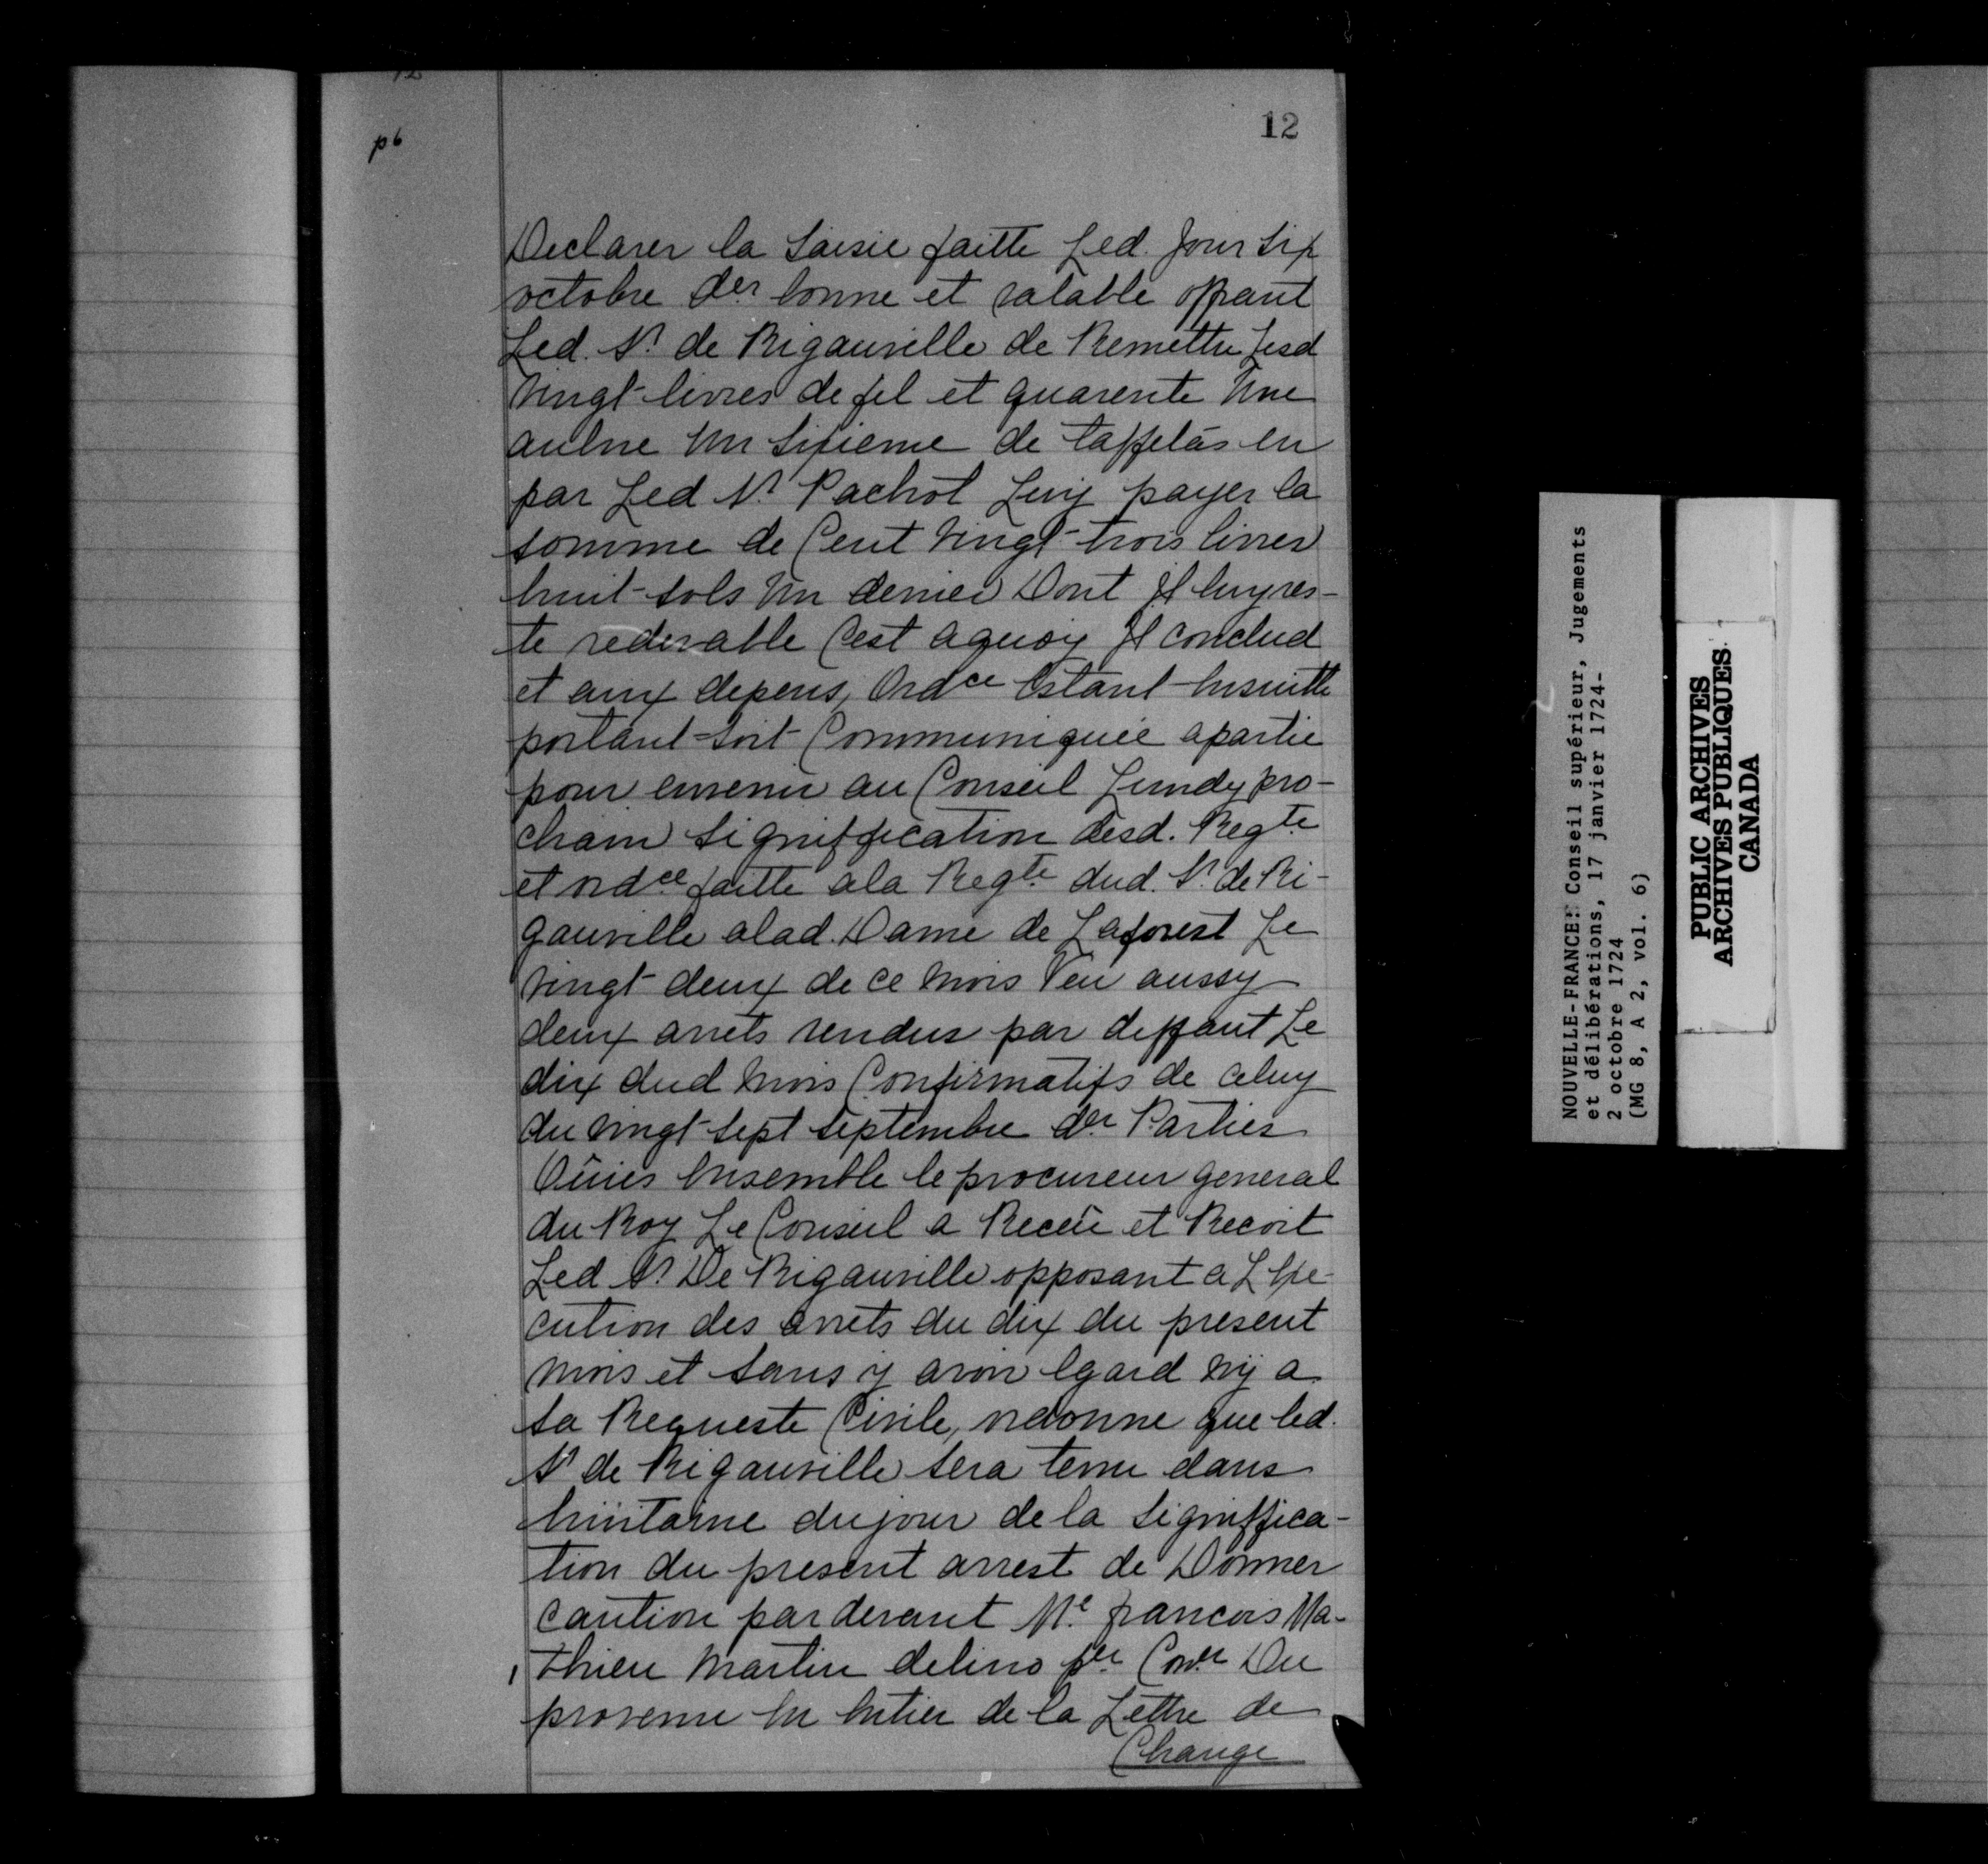 12
p6
12
Declarer la Saisie faitte Led. Jour Six
octobre der bonne et valable offrant
Led. Sr. de Rigauville de Remettre Lesd
vingt livres de fil et quarente Une
aulne Un Sixieme de taffetas en
par Led Sr. Pachot Luy payer la
somme de Cent Vingt-trois livres
huit sols Un denier Dont Il luy res-
te redevable C'est aquoy Il conclud
et aux depens, Ordce Estant Ensuitte
portant Soit Communiquée apartie
pour envenir au Conseil Lundy pro-
chain Signiffication desd. Regte
et ordce faitte ala Regte dud. Sr. de Ri-
gauville alad. Dame de Laforest Le
vingt deux de ce Mois Veu aussy
deux arrets rendus par deffaut Le
dix dud Mois Confirmatifs de celuy
du vingt-sept septembre der Parties
Oüies Ensemble le procureur general
du Roy Le Conseil a Receü et Recoit
Led Sr. De Rigauville opposant a L'Exe-
cution des arrets du dix du present
Mois et sans y avoir Egard Ny a
sa Requeste Civile, ordonne que led.
Sr de Rigauville sera tenu dans
huitaine dujour de la Signiffica-
tion du present arrest de Donner
caution pardevant Me. francois Ma-
thieu Martin delino per Conser Du
provenu En Entier de la Lettre de
Change
NOUVELLE-FRANCE: Conseil supérieur, Jugements
et délibérations, 17 janvier 1724-
2 octobre 1724
(MG 8, A 2, vol. 6)
PUBLIC ARCHIVES
ARCHIVES PUBLIQUES
CANADA